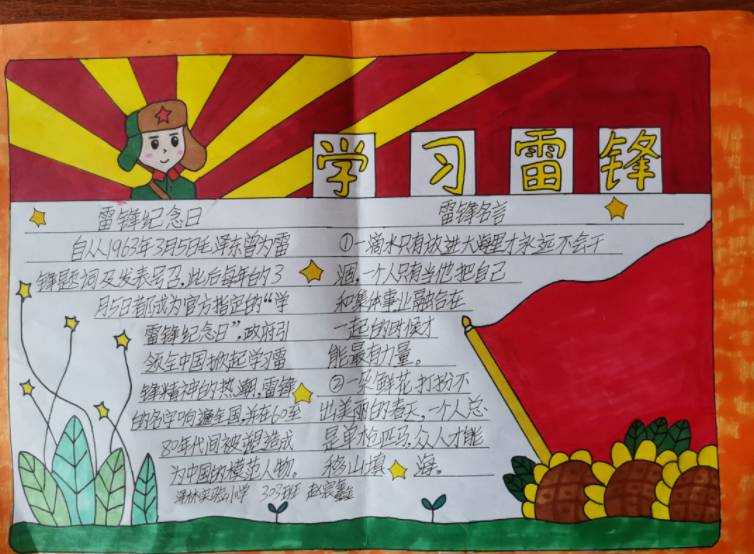 学习雷锋
雷锋纪念日
自从1963年3月5日毛泽东曾为雷
锋题词及发表号召,此后每年的3
月5日都成为官方指定的“学
雷锋纪念日”,政府引
领全中国掀起学习雷
锋精神的热潮,雷锋
的名字响遍全国,并在60至
80年代间被塑造成
为中国的模范人物。
实验小学 303班
雷锋名言
①一滴水只有放进大海里才永远不会干
涸,一个人只有当他把自己
和集体事业融合在
一起的时候才
能最有力量。
②一朵鲜花打扮不
出美丽的春天,一个人总
是单枪匹马,众人才能
移山填海。